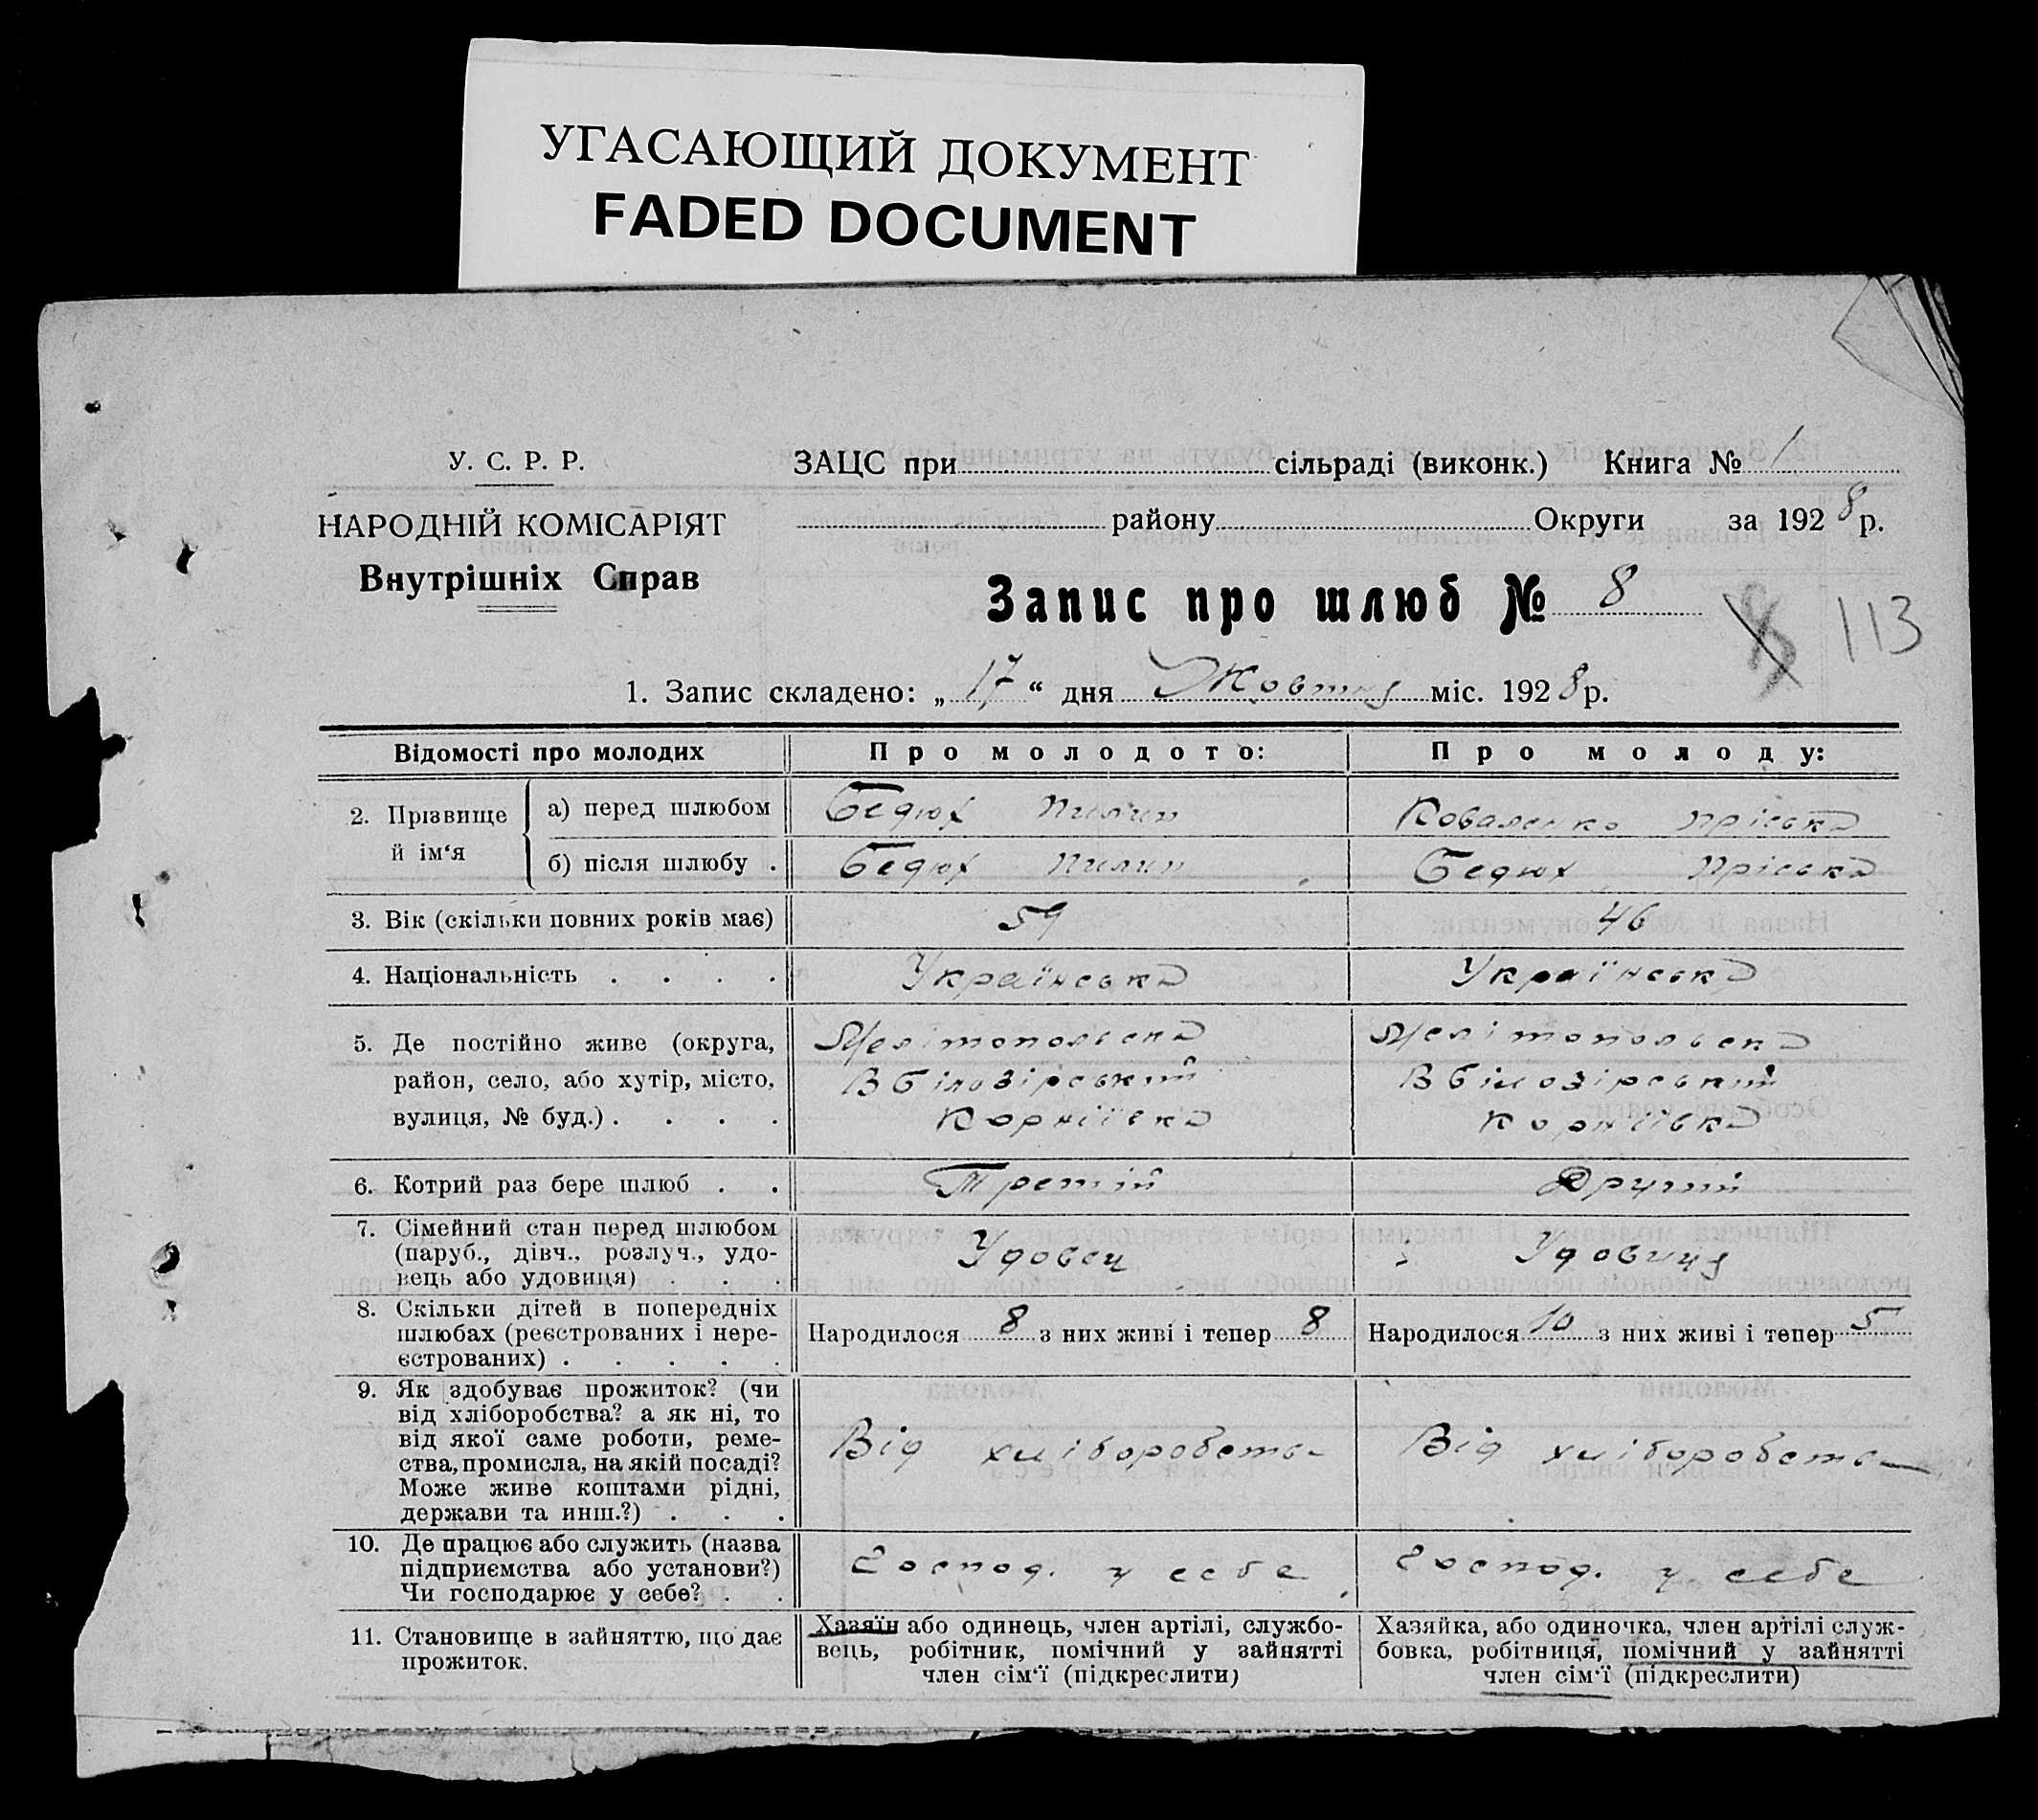 УГАСАЮЩИЙ ДОКУМЕНТ
FADED DOCUMENT
У. С. Р. Р.
НАРОДНІЙ КОМІСАРІЯТ
Внутрішніх Справ
ЗАЦС при сільраді (виконк.) Книга № 1
району Округи за 1928 р.
Запис про шлюб № 8
113
1. Запис складено: „ 17 “ дня Жовтня міс. 1928 р.
Відомості про молодих
Про молодого:
Про молоду:
2. Прізвище й ім‘я
а) перед шлюбом
Бедюх Пилип
Коваленко Пріська
б) після шлюбу .
Бедюх Пилип
Бедюх Пріська
3. Вік (скільки повних років має)
59
46
4. Національність . . . .
Українська
Українська
5. Де постійно живе (округа,
район, село, або хутір, місто,
вулиця, № буд.) . . . .
Мелітопольська
В білозірський
Корніївка
Мелітопольська
В білозірський
Корніївка
6. Котрий раз бере шлюб . .
Третій
Другий
7. Сімейний стан перед шлюбом
(паруб., дівч., розлуч., удо-
вець або удовиця) . . .
Удовец
Удовиця
8. Скільки дітей в попередніх
шлюбах (реєстрованих і нере-
єстрованих) . . . . .
Народилося 8 з них живі і тепер 8
Народилося 10 з них живі і тепер 5
9. Як здобуває прожиток? (чи
від хліборобства? а як ні, то
від якої саме роботи, реме-
ства, промисла, на якій посаді?
Може живе коштами рідні,
держави та инш.?) . . .
Від хліборобства
Від хліборобства
10. Де працює або служить (назва
підприємства або установи?)
Чи господарює у себе? . .
Господ. у себе
Господ. у себе
11. Становище в зайняттю, що дає
прожиток.
Хазяїн або одинець, член артілі, службо-
вець, робітник, помічний у зайнятті
член сім‘ї (підкреслити)
Хазяйка, або одиночка, член артілі служ-
бовка, робітниця, помічний у зайнятті
член сім‘ї (підкреслити)